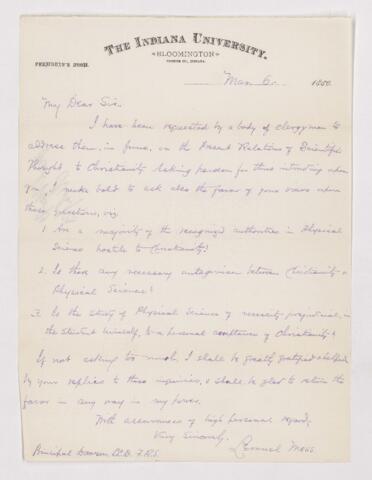 THE INDIANA UNIVERSITY.
BLOOMINGTON
MONROE CO., INDIANA.
PRESIDENT'S ROOM.
Mar. 6. 1880
My Dear Sir.
I have been requested by a body of clergymen to
address them, in June, on the Present Relations of Scientific
Thought to Christianity. Asking pardon for thus intruding upon
you, I make bold to ask also the favor of your views upon
these questions, viz.
1. Are a majority of the recognized authorities in Physical
Science hostile to Christianity?
2. Is there any necessary antagonism between Christianity &
Physical Science?
3. Is the study of Physical Science of necessity prejudicial, in
the student himself, to a personal acceptance of Christianity?
If not asking too much, I shall be greatly gratified & helped
by your replies to these inquiries, & shall be glad to return the
favor in any way in my power.
With assurances of high personal regard,
Very Sincerely,
Lemuel Moss.
Principal Dawson, LL.D. F.R.S.